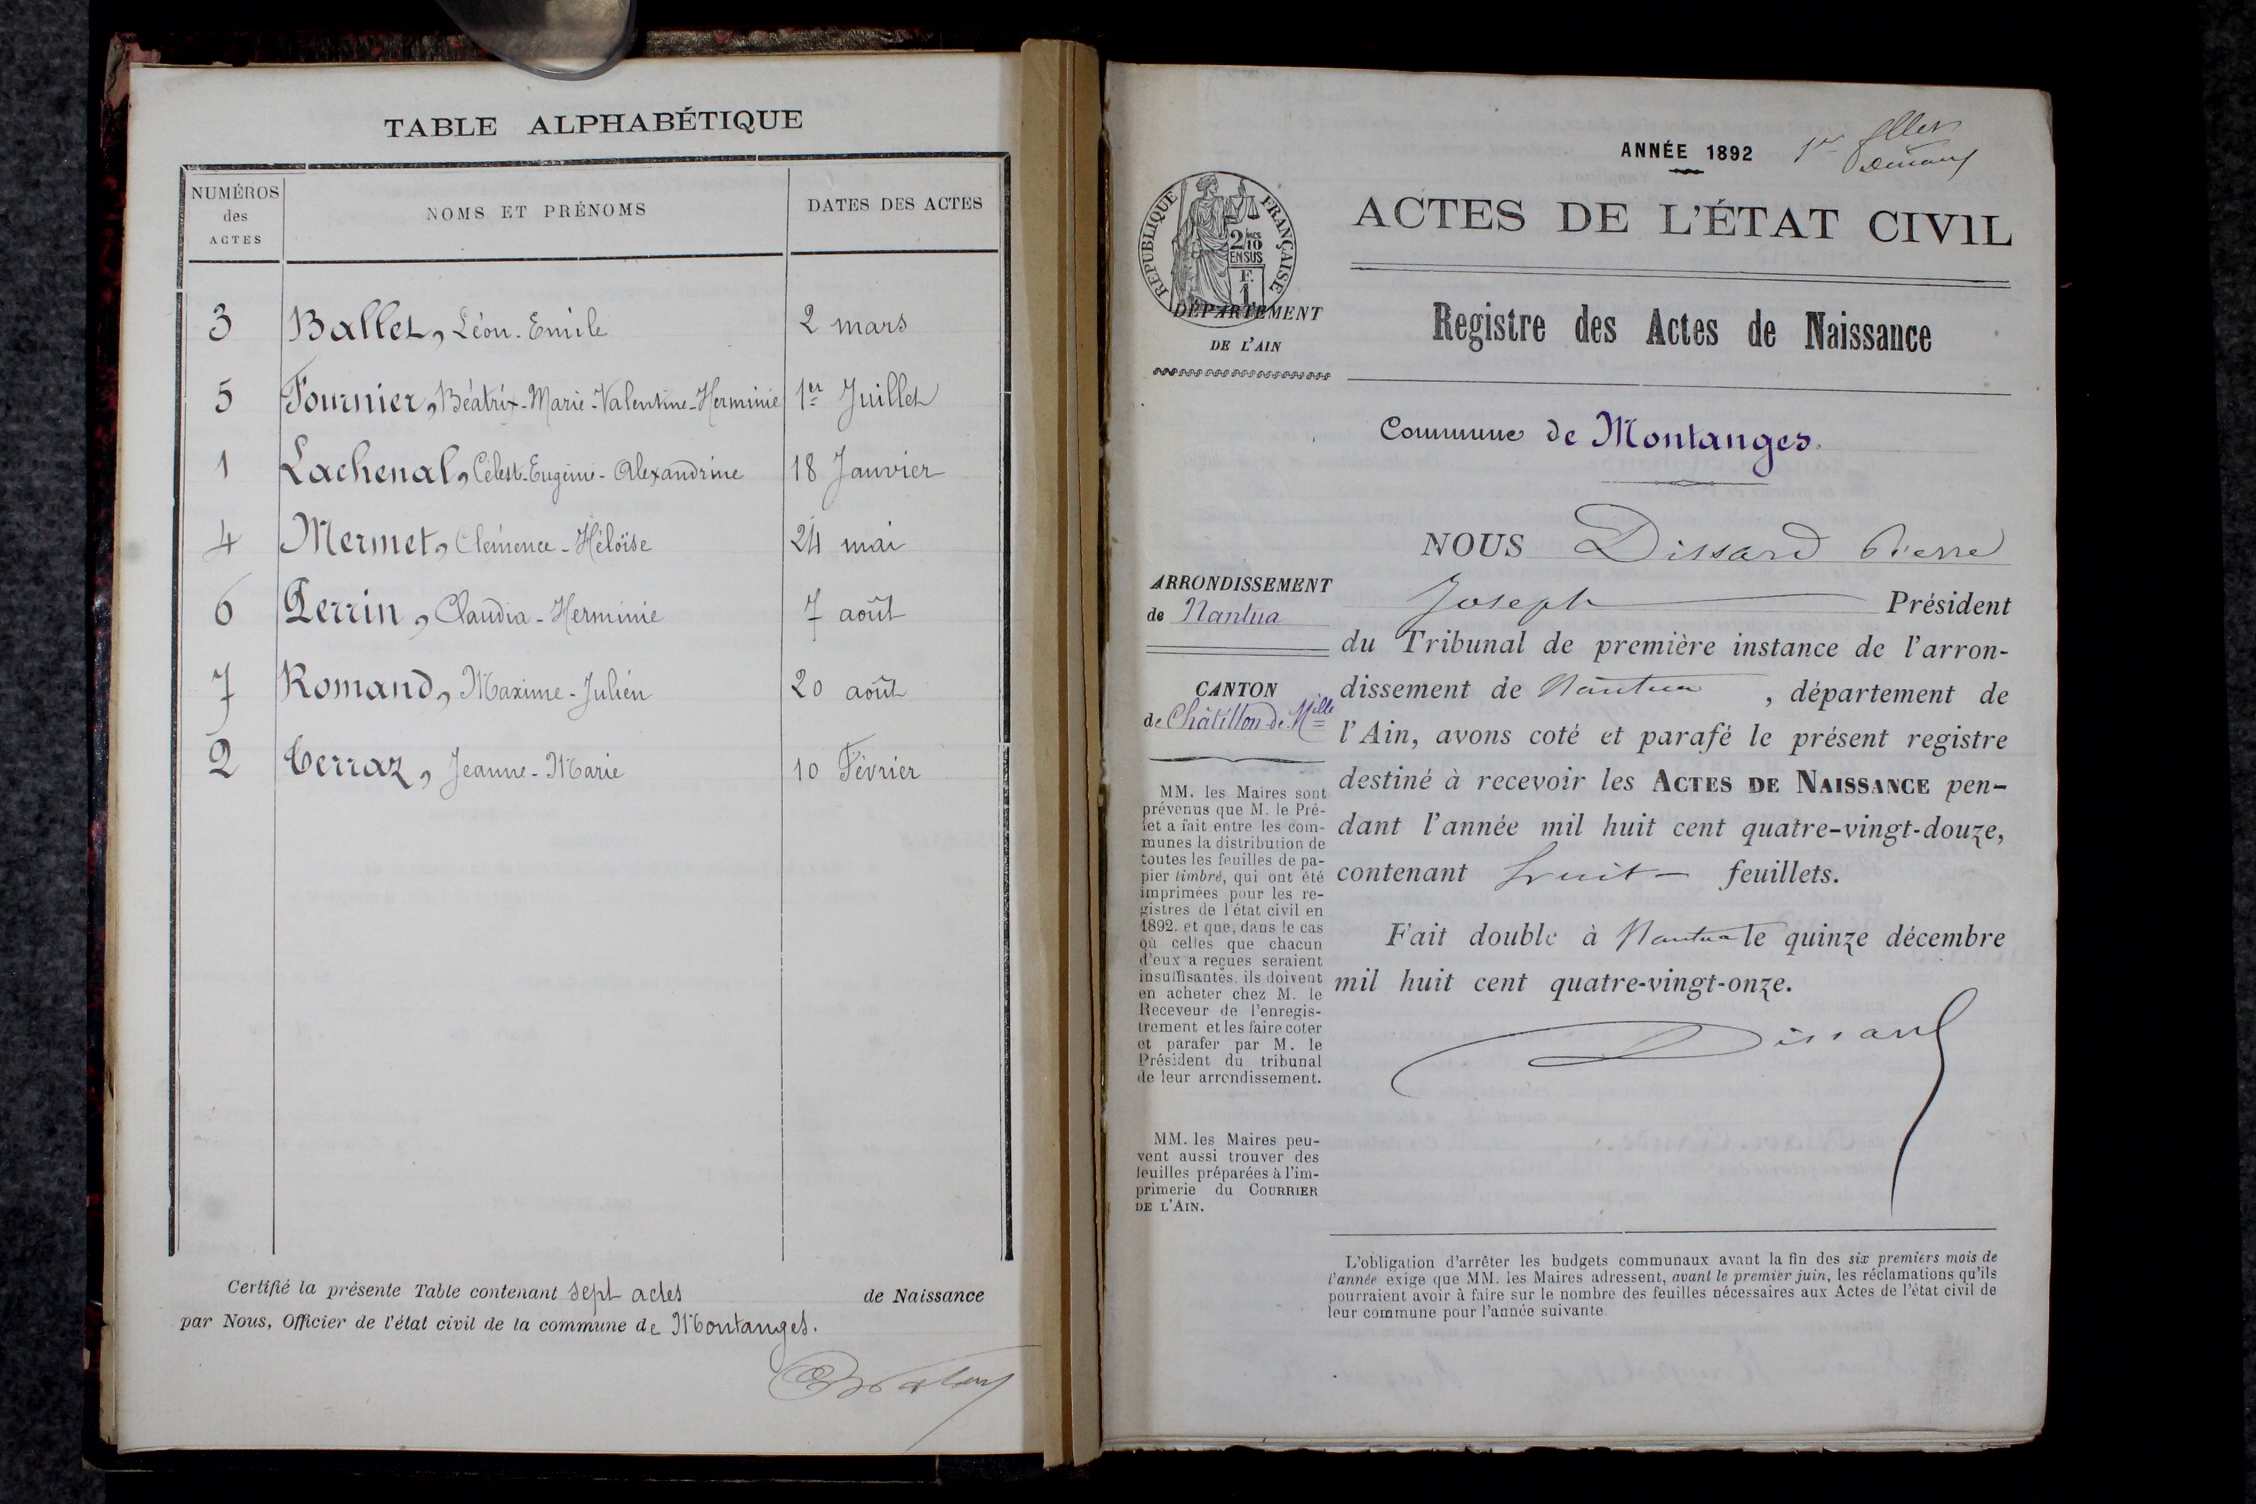 TABLE ALPHABÉTIQUE
NUMÉROS
des
ACTES
NOMS ET PRÉNOMS
DATES DES ACTES
3 Ballet, Léon-Emile 2 mars
5 Fournier, Béatrix-Marie-Valentine-Herminie 1er Juillet
1 Lachenal, Céleste-Eugénie-Alexandrine 18 Janvier
4 Mermet, Clémence-Héloïse 24 mai
6 Perrin, Claudia-Herminie 7 août
7 Romand, Maxime-Julien 20 août
2 Terraz, Jeanne-Marie 10 Février
Certifié la présente Table contenant sept actes de Naissance
par Nous, Officier de l'état civil de la commune de Montanges.
ANNÉE 1892
1er
RÉPUBLIQUE FRANÇAISE
2/10
EN SUS
F.
1
ACTES DE L'ÉTAT CIVIL
DÉPARTEMENT
DE L'AIN
Registre des Actes de Naissance
Commune de Montanges.
ARRONDISSEMENT
de Nantua
CANTON
de Châtillon-de-Mlle
MM. les Maires sont
prévenus que M. le Pré-
fet a fait entre les com-
munes la distribution de
toutes les feuilles de pa-
pier timbré, qui ont été
imprimées pour les re-
gistres de l'état civil en
1892. et que, dans le cas
où celles que chacun
d'eux a reçues seraient
insuffisantes, ils doivent
en acheter chez M. le
Receveur de l'enregis-
trement et les faire coter
et parafer par M. le
Président du tribunal
de leur arrondissement.
MM. les Maires peu-
vent aussi trouver des
feuilles préparées à l'im-
primerie du COURRIER
DE L'AIN.
NOUS Dissard Pierre
Joseph Président
du Tribunal de première instance de l'arron-
dissement de Nantua, département de
l'Ain, avons coté et parafé le présent registre
destiné à recevoir les ACTES DE NAISSANCE pen-
dant l'année mil huit cent quatre-vingt-douze,
contenant huit feuillets.
Fait double à Nantua le quinze décembre
mil huit cent quatre-vingt-onze.
Dissard
L'obligation d'arrêter les budgets communaux avant la fin des six premiers mois de
l'année exige que MM. les Maires adressent, avant le premier juin, les réclamations qu'ils
pourraient avoir à faire sur le nombre des feuilles nécessaires aux Actes de l'état civil de
leur commune pour l'année suivante